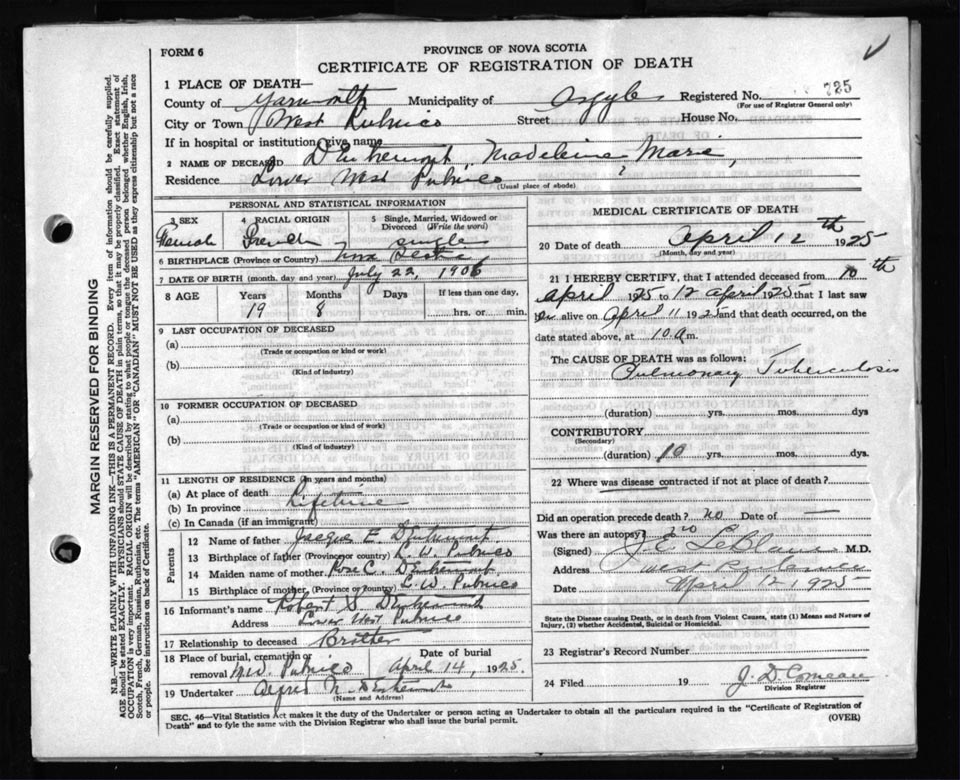 FORM 6
PROVINCE OF NOVA SCOTIA
CERTIFICATE OF REGISTRATION OF DEATH
725
1 PLACE OF DEATH—
County of Yarmouth Municipality of Argyle Registered No.
(For use of Registrar General only)
City or Town West Pubnico Street House No.
If in hospital or institution, give name
2 NAME OF DECEASED D'Entremont, Madeleine Marie,
Residence Lower West Pubnico
(Usual place of abode)
PERSONAL AND STATISTICAL INFORMATION
3 SEX
Female
4 RACIAL ORIGIN
French
5 Single, Married, Widowed or Divorced (Write the word)
single
6 BIRTHPLACE (Province or Country) Nova Scotia
7 DATE OF BIRTH (month, day and year) July 22, 1906
8 AGE Years Months Days If less than one day,
19 8 hrs. or min.
9 LAST OCCUPATION OF DECEASED
(a)
(Trade or occupation or kind or work)
(b)
(Kind of industry)
10 FORMER OCCUPATION OF DECEASED
(a)
(Trade or occupation or kind or work)
(b)
(Kind of industry)
11 LENGTH OF RESIDENCE (In years and months)
(a) At place of death
(b) In province Lifetime
(c) In Canada (if an immigrant)
Parents
12 Name of father Jacque E. D'Entremont
13 Birthplace of father (Province or country) L. W. Pubnico
14 Maiden name of mother Rose C. D'Entremont
15 Birthplace of mother (Province or country) L. W. Pubnico
16 Informant's name Robert S. D'Entremont
Address Lower West Pubnico
17 Relationship to deceased Brother
18 Place of burial, cremation or removal Pubnico
Date of burial
April 14, 1925
19 Undertaker D'Entremont
(Name and Address)
MEDICAL CERTIFICATE OF DEATH
20 Date of death April 12th 1925
(Month, day and year)
21 I HEREBY CERTIFY, that I attended deceased from 10th
April 1925 to 12 April 1925 that I last saw
alive on April 11 1925 and that death occurred, on
date stated above, at 10 a m.
The CAUSE OF DEATH was as follows:
Pulmonary Tuberculosis
(duration) yrs. mos. dys
CONTRIBUTORY
(Secondary)
(duration) 10 yrs. mos. dys
22 Where was disease contracted if not at place of death?
Did an operation precede death? no Date of —
Was there an autopsy? no
(Signed) J. E. LeBlanc M.D.
Address West Pubnico
Date April 12 1925
State the Disease causing Death, or in death from Violent Causes, state (1) Means and Nature of Injury, (2) whether Accidental, Suicidal or Homicidal.
23 Registrar's Record Number
24 Filed 19 J. D. Comeau
Division Registrar
SEC. 46—Vital Statistics Act makes it the duty of the Undertaker or person acting as Undertaker to obtain all the particulars required in the "Certificate of Registration of
Death" and to fyle the same with the Division Registrar who shall issue the burial permit.
(OVER)
MARGIN RESERVED FOR BINDING
N.B.—WRITE PLAINLY WITH UNFADING INK—THIS IS A PERMANENT RECORD. Every item of information should be carefully supplied.
AGE should be stated EXACTLY. PHYSICIANS should STATE CAUSE OF DEATH in plain terms, so that it may be properly classified. Exact statement of
OCCUPATION is very important. RACIAL ORIGIN will be described by stating to what people or tongue the deceased person belonged, whether English, Irish,
Scotch, French, German, Russian, Ruthenian, etc. The terms "AMERICAN" OR "CANADIAN" MUST NOT BE USED as they express citizenship but not a race
or people. See instructions on back of Certificate.